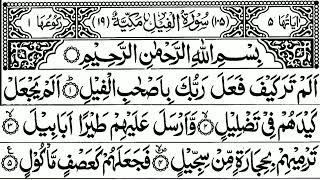 اٰیَاتُهَا ۵ (۱۰۵) سُوْرَةُ الْفِيْلِ مَكِّيَّةٌ (۱۹) رُكُوْعُهَا ۱
بِسْمِ اللهِ الرَّحْمٰنِ الرَّحِيْمِ
اَلَمْ تَرَ كَيْفَ فَعَلَ رَبُّكَ بِاَصْحٰبِ الْفِيْلِ ۝ اَلَمْ يَجْعَلْ
كَيْدَهُمْ فِيْ تَضْلِيْلٍ ۝۲ وَّاَرْسَلَ عَلَيْهِمْ طَيْرًا اَبَابِيْلَ ۝۳
تَرْمِيْهِمْ بِحِجَارَةٍ مِّنْ سِجِّيْلٍ ۝۴ فَجَعَلَهُمْ كَعَصْفٍ مَّاْكُوْلٍ ۝۵